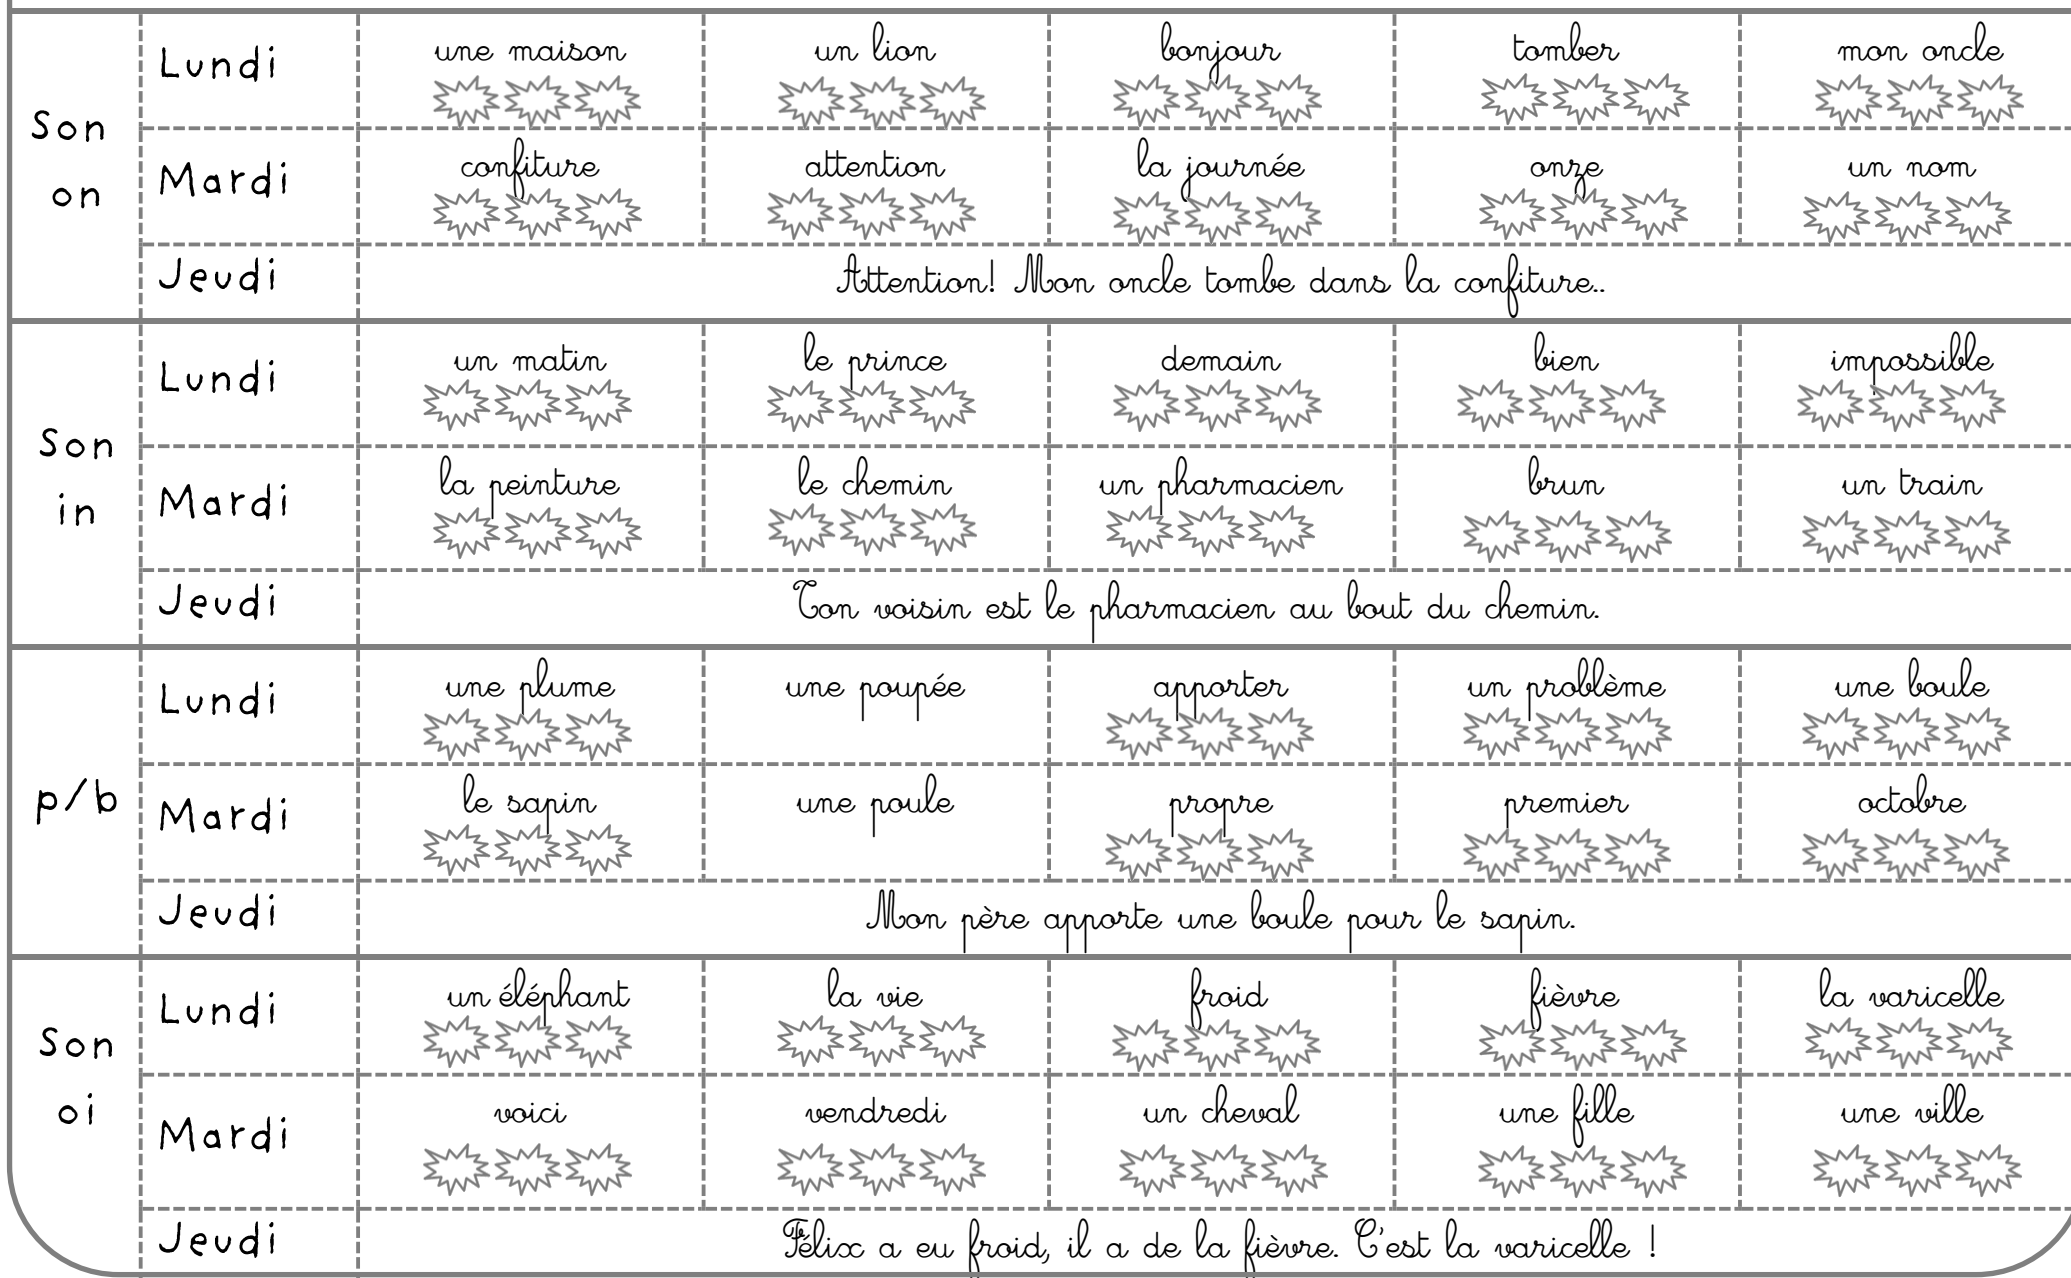 Son
on
Lundi
une maison
un lion
bonjour
tomber
mon oncle
Mardi
confiture
attention
la journée
onze
un nom
Jeudi
Attention! Mon oncle tombe dans la confiture..
Son
in
Lundi
un matin
le prince
demain
bien
impossible
Mardi
la peinture
le chemin
un pharmacien
brun
un train
Jeudi
Ton voisin est le pharmacien au bout du chemin.
p/b
Lundi
une plume
une poupée
apporter
un problème
une boule
Mardi
le sapin
une poule
propre
premier
octobre
Jeudi
Mon père apporte une boule pour le sapin.
Son
oi
Lundi
un éléphant
la vie
froid
fièvre
la varicelle
Mardi
voici
vendredi
un cheval
une fille
une ville
Jeudi
Félix a eu froid, il a de la fièvre. C'est la varicelle !